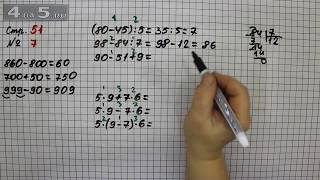 4 ДЗ.ru
Стр. 51
№ 7
860-800=60
700+50=750
999-90=909
1 2
(80-45):5=35:5=7
2 1
98-84:7=98-12=86
90-51+9=
1 3 2
5·9+7·6=
1 3 2
5·9-7·6=
2 1 3
5·(9-7)·6=
84|7
7 12
14
14
0